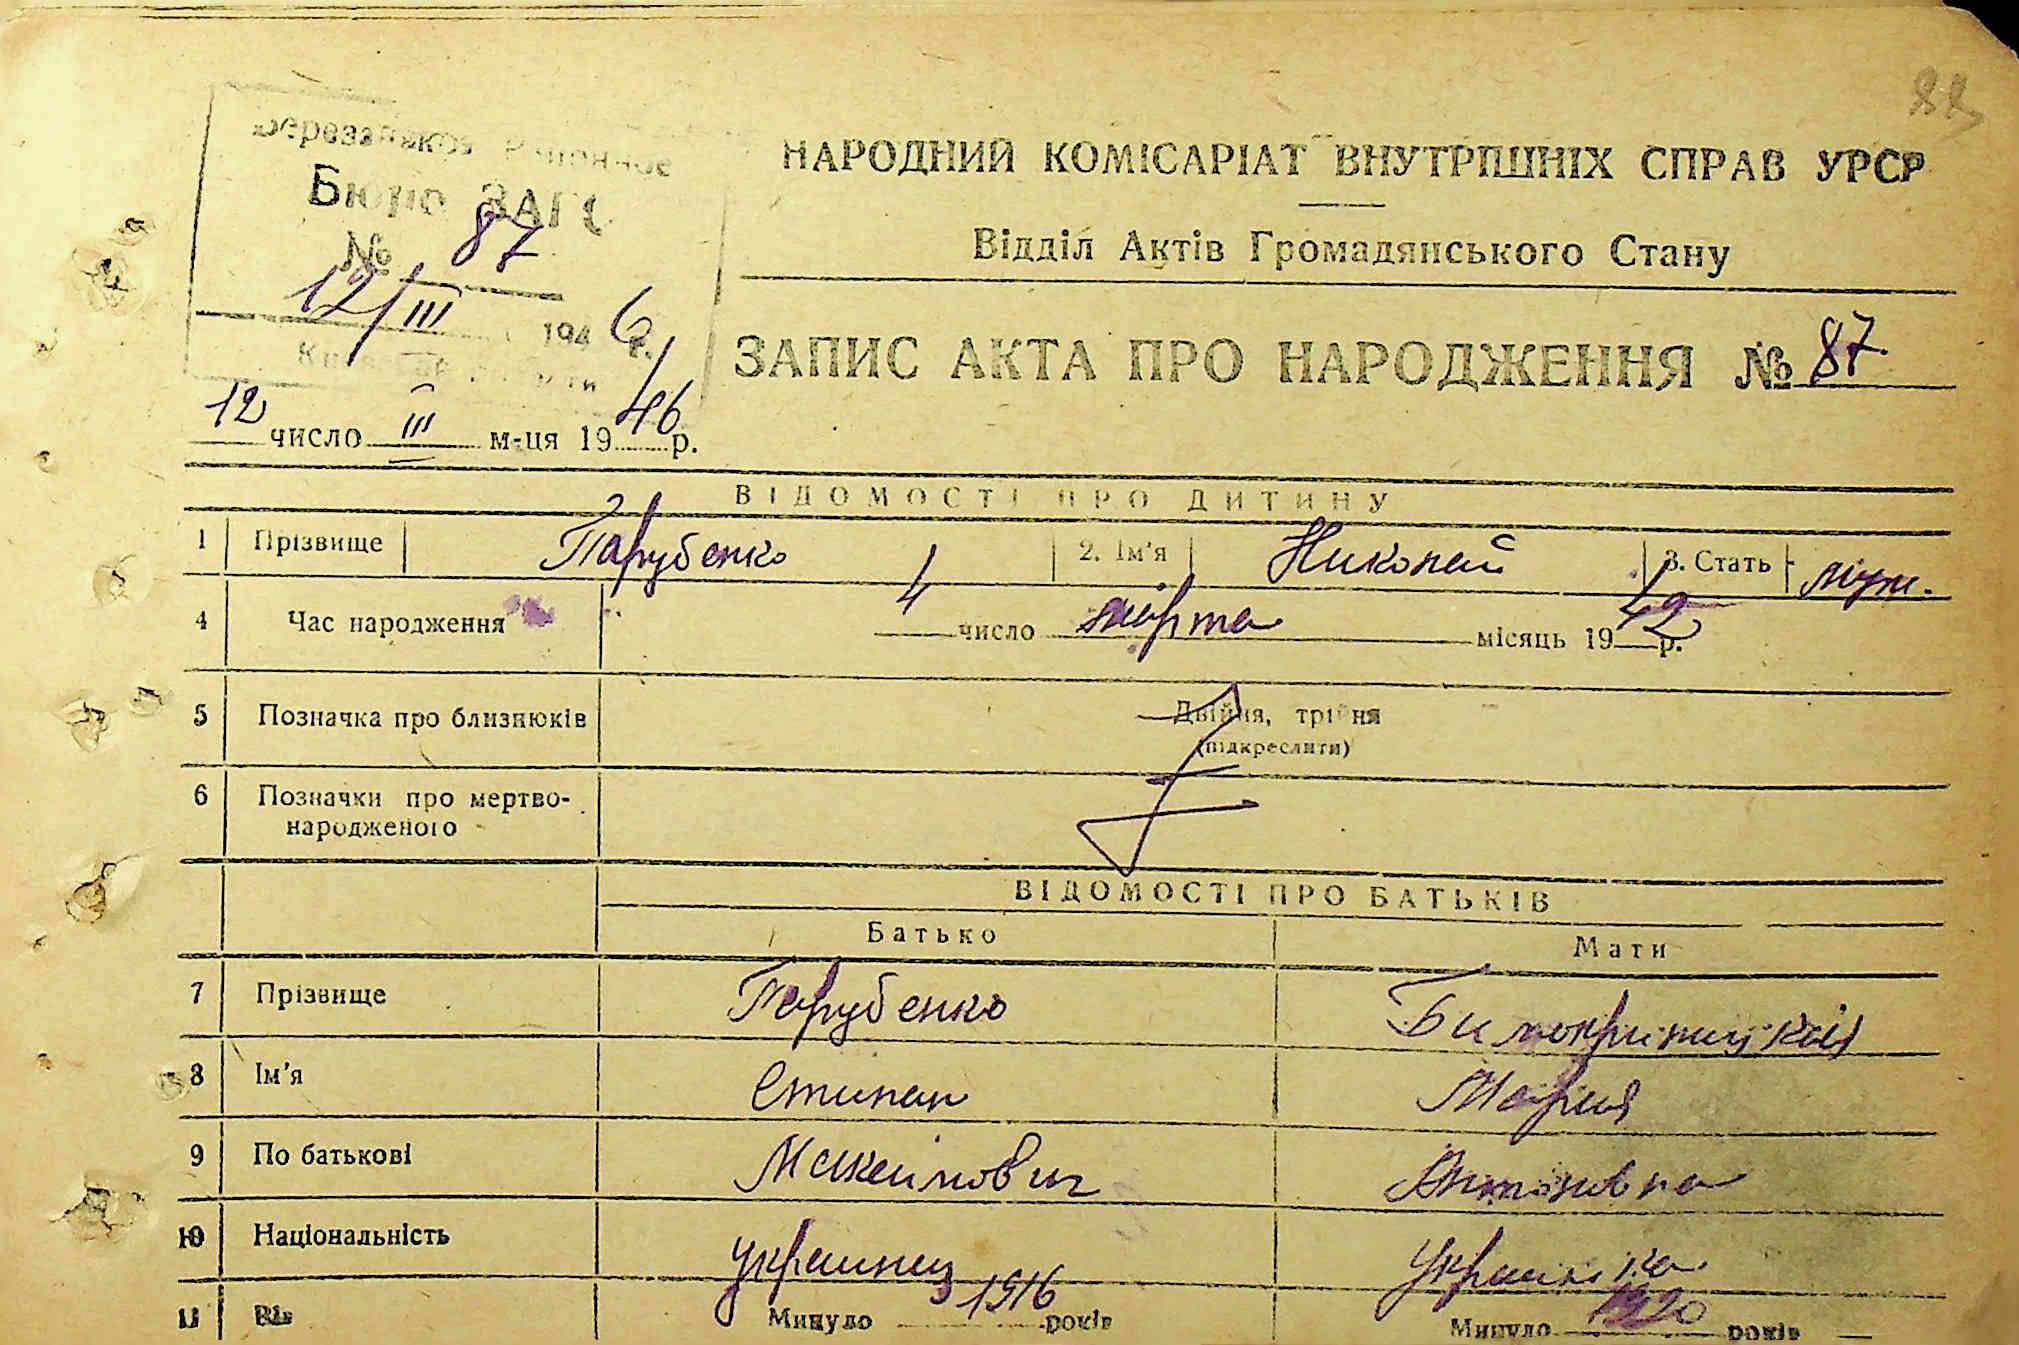 88
Бюро ЗАГС
№ 87
12/III 1946 г.
НАРОДНИЙ КОМІСАРІАТ ВНУТРІШНІХ СПРАВ УРСР
Відділ Актів Громадянського Стану
ЗАПИС АКТА ПРО НАРОДЖЕННЯ № 87
12 число III м-ця 1946 р.
ВІДОМОСТІ ПРО ДИТИНУ
1 Прізвище Парубенко 2. Ім'я Николай 3. Стать муж.
4 Час народження 4 число марта місяць 1942 р.
5 Позначка про близнюків Двійня, трійня
(підкреслити)
6 Позначки про мертво-
народженого
ВІДОМОСТІ ПРО БАТЬКІВ
Батько Мати
7 Прізвище Парубенко
8 Ім'я Степан Мария
9 По батькові Максимович Антоновна
10 Національність украинец украинка
11 Вік Минуло 1916 років Минуло 1920 років